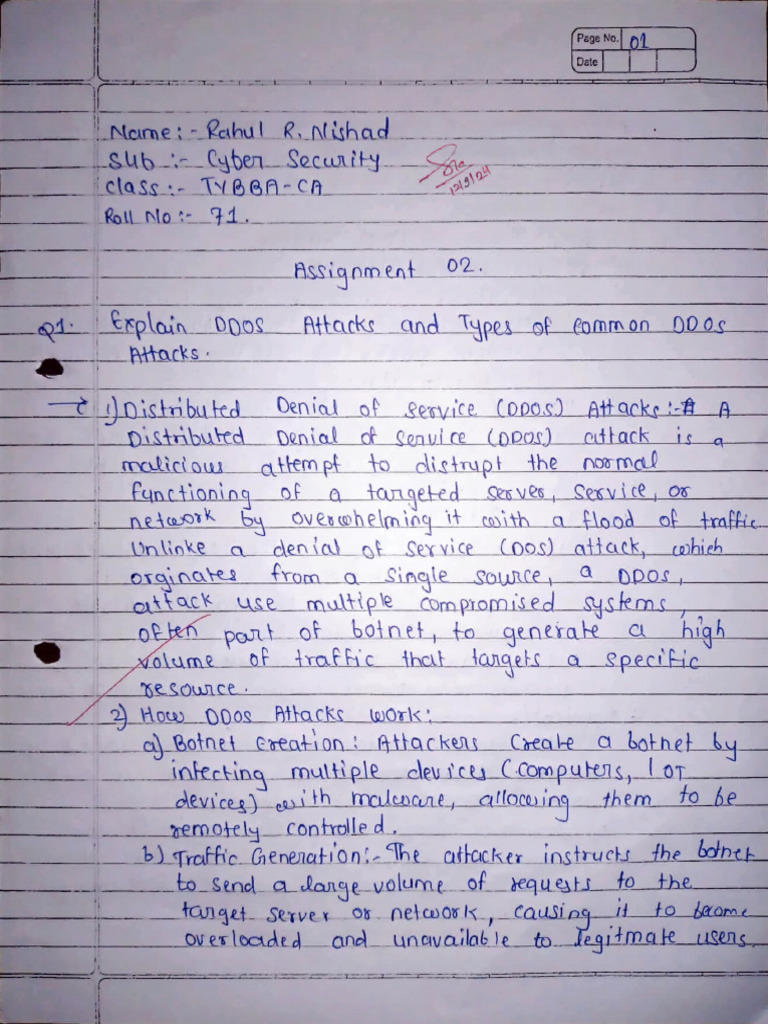 Page No. 01
Date
Name:- Rahul R. Nishad
Sub :- Cyber Security
Class:- TYBBA-CA
Roll No:- 71.
12/9/24
Assignment 02.
Q1. Explain DDOS Attacks and Types of common DDOS
Attacks.
→ 1) Distributed Denial of Service (DDOS) Attacks:- A
Distributed Denial of Service (DDOS) attack is a
malicious attempt to distrupt the normal
functioning of a targeted server, service, or
network by overwhelming it with a flood of traffic
Unlinke a denial of Service (DOS) attack, which
orginates from a single source, a DDOS,
attack use multiple compromised systems,
often part of botnet, to generate a high
volume of traffic that targets a specific
resource.
2) How DDOS Attacks work:
a) Botnet Creation: Attackers Create a botnet by
infecting multiple devices (computers, IOT
devices) with malware, allowing them to be
remotely controlled.
b) Traffic Generation:- The attacker instructs the botnet
to send a large volume of requests to the
target server or network, causing it to become
overloaded and unavailable to legitmate users.